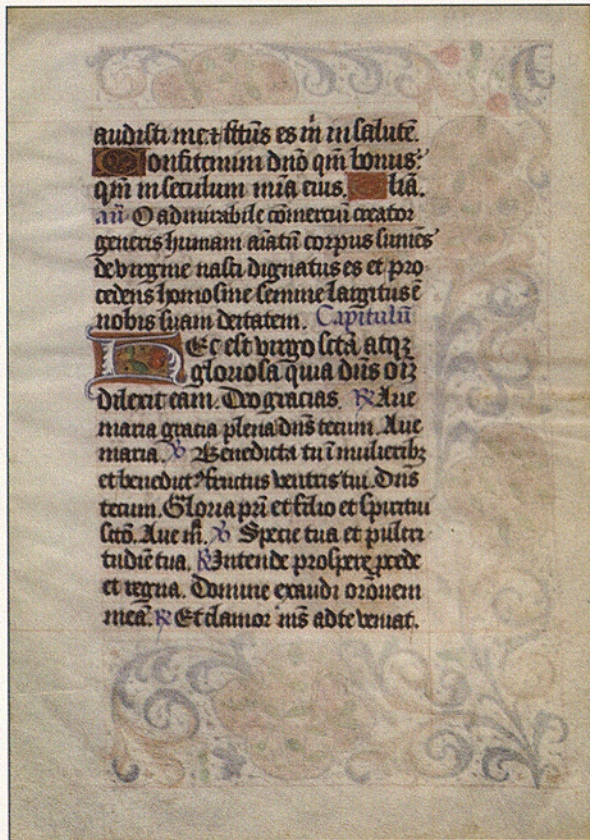 audisti me. ⁊ fctūs es m̄ in salutē.
Confitemini dn̄o qm̄ bonus:
qm̄ in seculum mīa eius. Gliā.
an̄ O admirabile cōmerciū creator
generis humani aīatū corpus sumēs
de virgine nasci dignatus es et pro
cedens homo sine semine largitus ē
nobis suam deitatem. Capitulū
HEc est virgo sctā atqꝫ
gloriosa quia dn̄s oīꝫ
dilexit eam. Deo gracias. ℟ Aue
maria gracia plena dn̄s tecum. Aue
maria. ℣ Benedicta tu ī mulieribꝫ
et benedictꝰ fructus ventris tui. Dn̄s
tecum. Gloria pr̄i et filio et spiritui
sctō. Aue m̄. ℣ Specie tua et pulcri
tudīe tua. ℟ Intende prospere ꝓcede
et regna. Domine exaudi orōnem
meā. ℟ Et clamor m̄s ad te veniat.